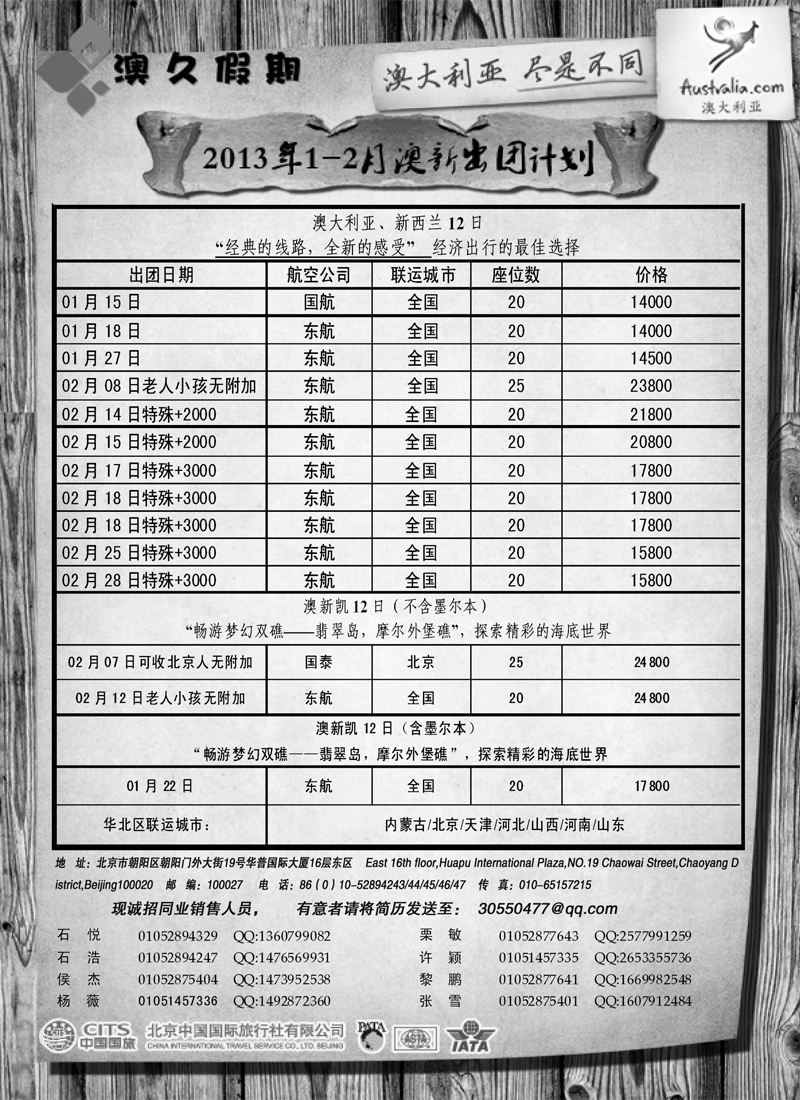 澳久假期
澳大利亚 尽是不同
Australia.com
澳大利亚
2013年1-2月澳新出团计划
澳大利亚、新西兰 12 日
“经典的线路，全新的感受” 经济出行的最佳选择
出团日期 航空公司 联运城市 座位数 价格
01 月 15 日 国航 全国 20 14000
01 月 18 日 东航 全国 20 14000
01 月 27 日 东航 全国 20 14500
02 月 08 日老人小孩无附加 东航 全国 25 23800
02 月 14 日特殊+2000 东航 全国 20 21800
02 月 15 日特殊+2000 东航 全国 20 20800
02 月 17 日特殊+3000 东航 全国 20 17800
02 月 18 日特殊+3000 东航 全国 20 17800
02 月 18 日特殊+3000 东航 全国 20 17800
02 月 25 日特殊+3000 东航 全国 20 15800
02 月 28 日特殊+3000 东航 全国 20 15800
澳新凯 12 日（不含墨尔本）
“畅游梦幻双礁——翡翠岛，摩尔外堡礁”，探索精彩的海底世界
02 月 07 日可收北京人无附加 国泰 北京 25 24800
02 月 12 日老人小孩无附加 东航 全国 20 24800
澳新凯 12 日（含墨尔本）
“畅游梦幻双礁——翡翠岛，摩尔外堡礁”，探索精彩的海底世界
01 月 22 日 东航 全国 20 17800
华北区联运城市： 内蒙古/北京/天津/河北/山西/河南/山东
地 址：北京市朝阳区朝阳门外大街19号华普国际大厦16层东区 East 16th floor,Huapu International Plaza,NO.19 Chaowai Street,Chaoyang D
istrict,Beijing100020 邮 编：100027 电 话：86（0）10-52894243/44/45/46/47 传 真：010-65157215
现诚招同业销售人员， 有意者请将简历发送至： 30550477@qq.com
石 悦 01052894329 QQ:1360799082 栗 敏 01052877643 QQ:2577991259
石 浩 01052894247 QQ:1476569931 许 颖 01051457335 QQ:2653355736
侯 杰 01052875404 QQ:1473952538 黎 鹏 01052877641 QQ:1669982548
杨 薇 01051457336 QQ:1492872360 张 雪 01052875401 QQ:1607912484
CITS 中国国旅 北京中国国际旅行社有限公司 PATA ASTA IATA
CHINA INTERNATIONAL TRAVEL SERVICE CO., LTD. BEIJING